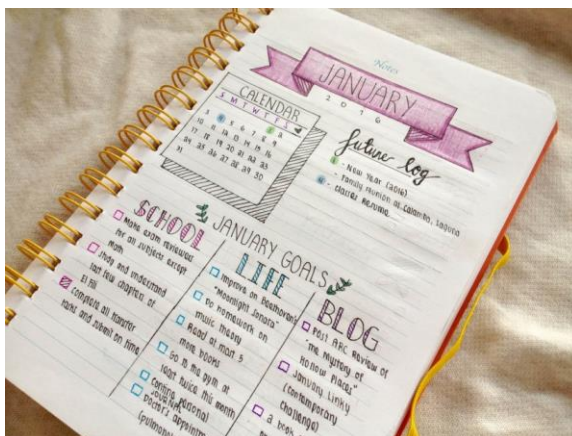 Notes
JANUARY
2016
CALENDAR
S M T W T F S
3 4 5 6 7 8 9
10 11 12 13 14 15 16
17 18 19 20 21 22 23
24 25 26 27 28 29 30
31
future log
- New Year (2016)
- Family Reunion at Calamba, Laguna
- Classes Resume
JANUARY GOALS
SCHOOL
Make exam reviewers
for all subjects except
Math
Study and understand
last few chapters of
El Fili
Complete all transfer
tasks and submit on time
LIFE
Improve on Beethoven's
"Moonlight Sonata"
Do homework on
music theory
Read at most 5
more books
Go to the gym at
least twice this month
personal
Doctor's appointment
BLOG
Post ARC Review of
"The Mystery of
Hollow Places"
January Linky
(Contemporary
Challenge)
a book